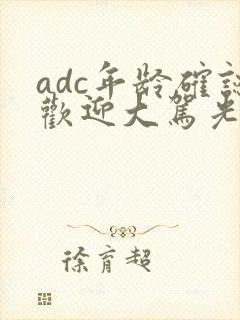 adc年龄確認
歡迎大駕光
徐育超